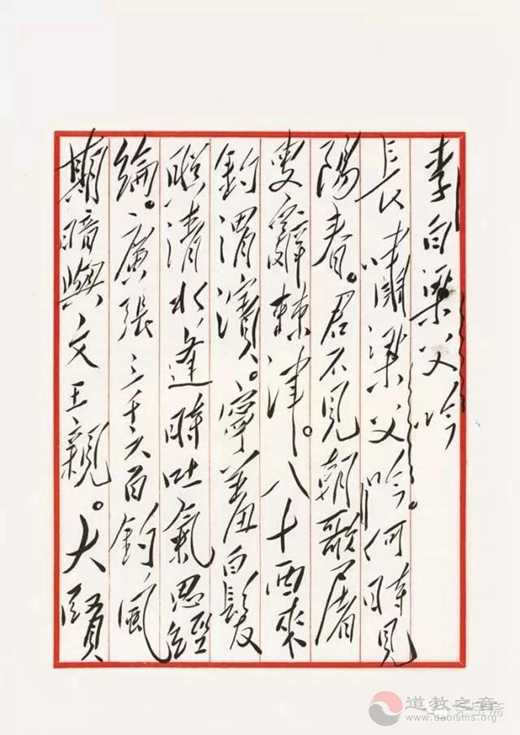 李白梁父吟
長嘯梁父吟。何時見
陽春。君不見朝歌屠
叟辭棘津。八十西來
釣渭濱。寧羞白髮
照清水逢時吐氣思經
綸。廣張三千六百釣風
期暗與文王親。大賢
道教之音
www.daoisms.org